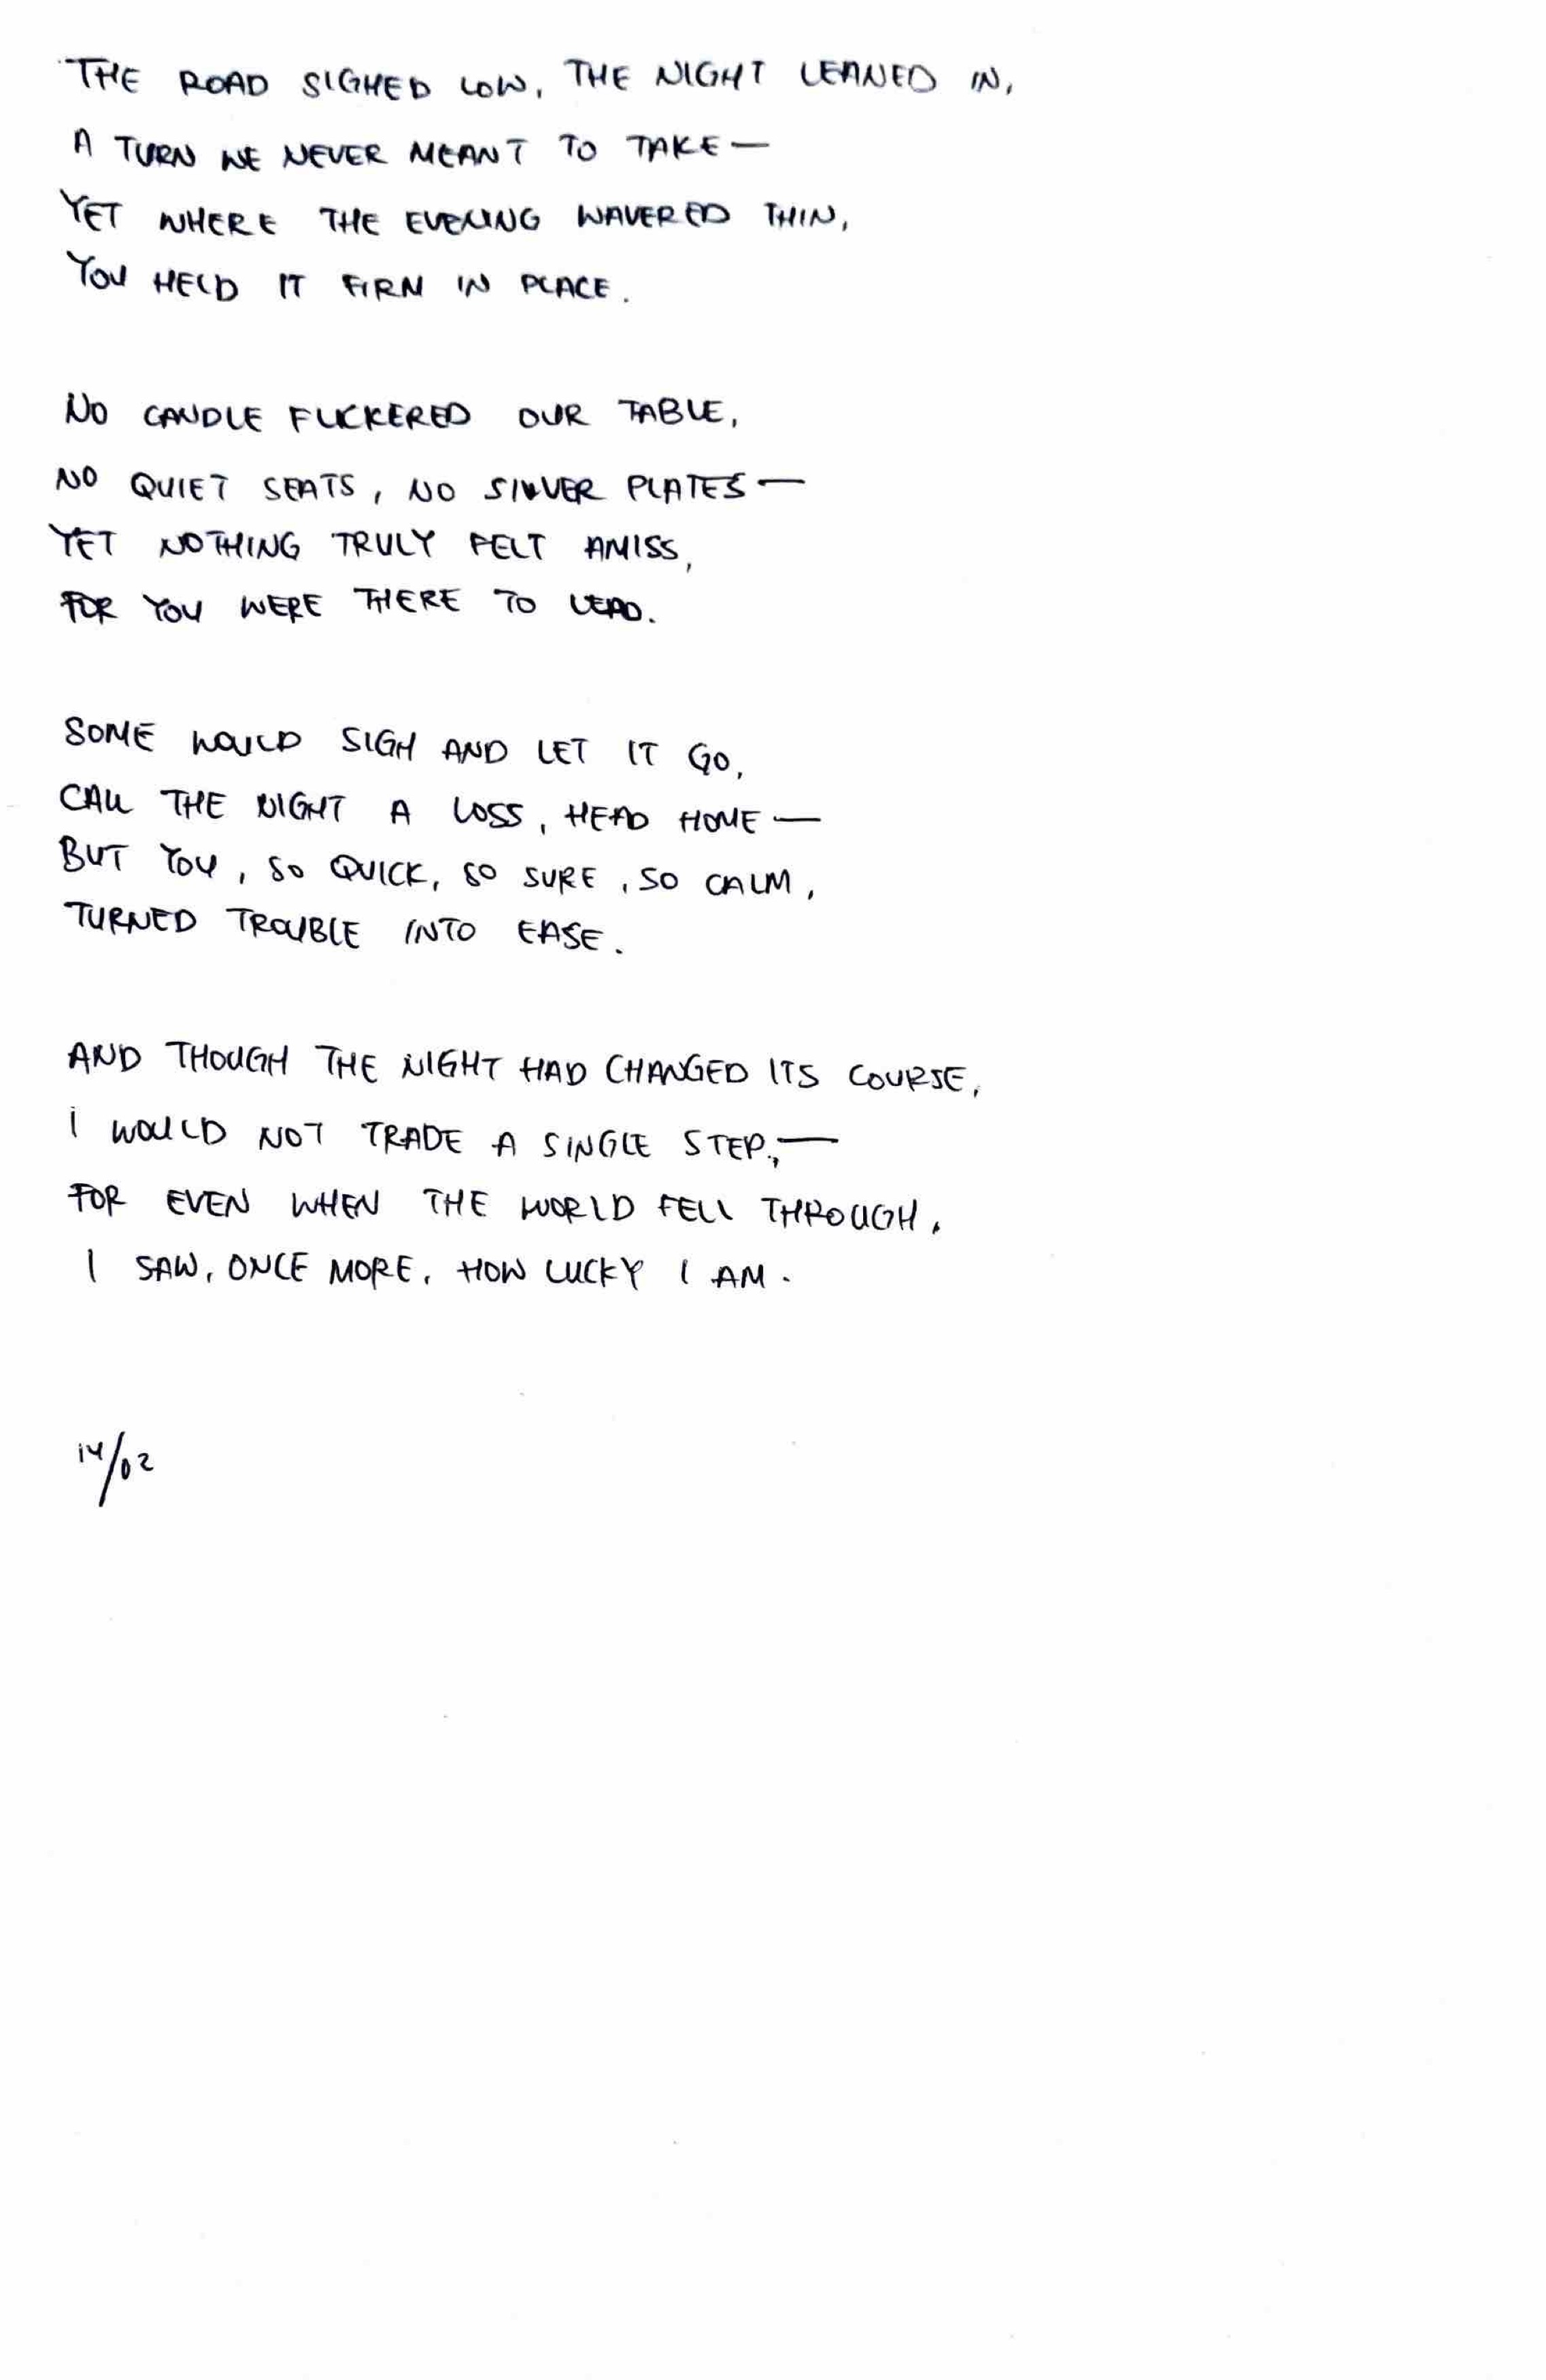 THE ROAD SIGHED LOW, THE NIGHT LEANED IN,
A TURN WE NEVER MEANT TO TAKE—
YET WHERE THE EVENING WAVERED THIN,
YOU HELD IT FIRM IN PLACE.
NO CANDLE FLICKERED OUR TABLE,
NO QUIET SEATS, NO SILVER PLATES—
YET NOTHING TRULY FELT AMISS,
FOR YOU WERE THERE TO LEAD.
SOME WOULD SIGH AND LET IT GO,
CALL THE NIGHT A LOSS, HEAD HOME—
BUT YOU, SO QUICK, SO SURE, SO CALM,
TURNED TROUBLE INTO EASE.
AND THOUGH THE NIGHT HAD CHANGED ITS COURSE,
I WOULD NOT TRADE A SINGLE STEP,—
FOR EVEN WHEN THE WORLD FELL THROUGH,
I SAW, ONCE MORE, HOW LUCKY I AM.
14/02